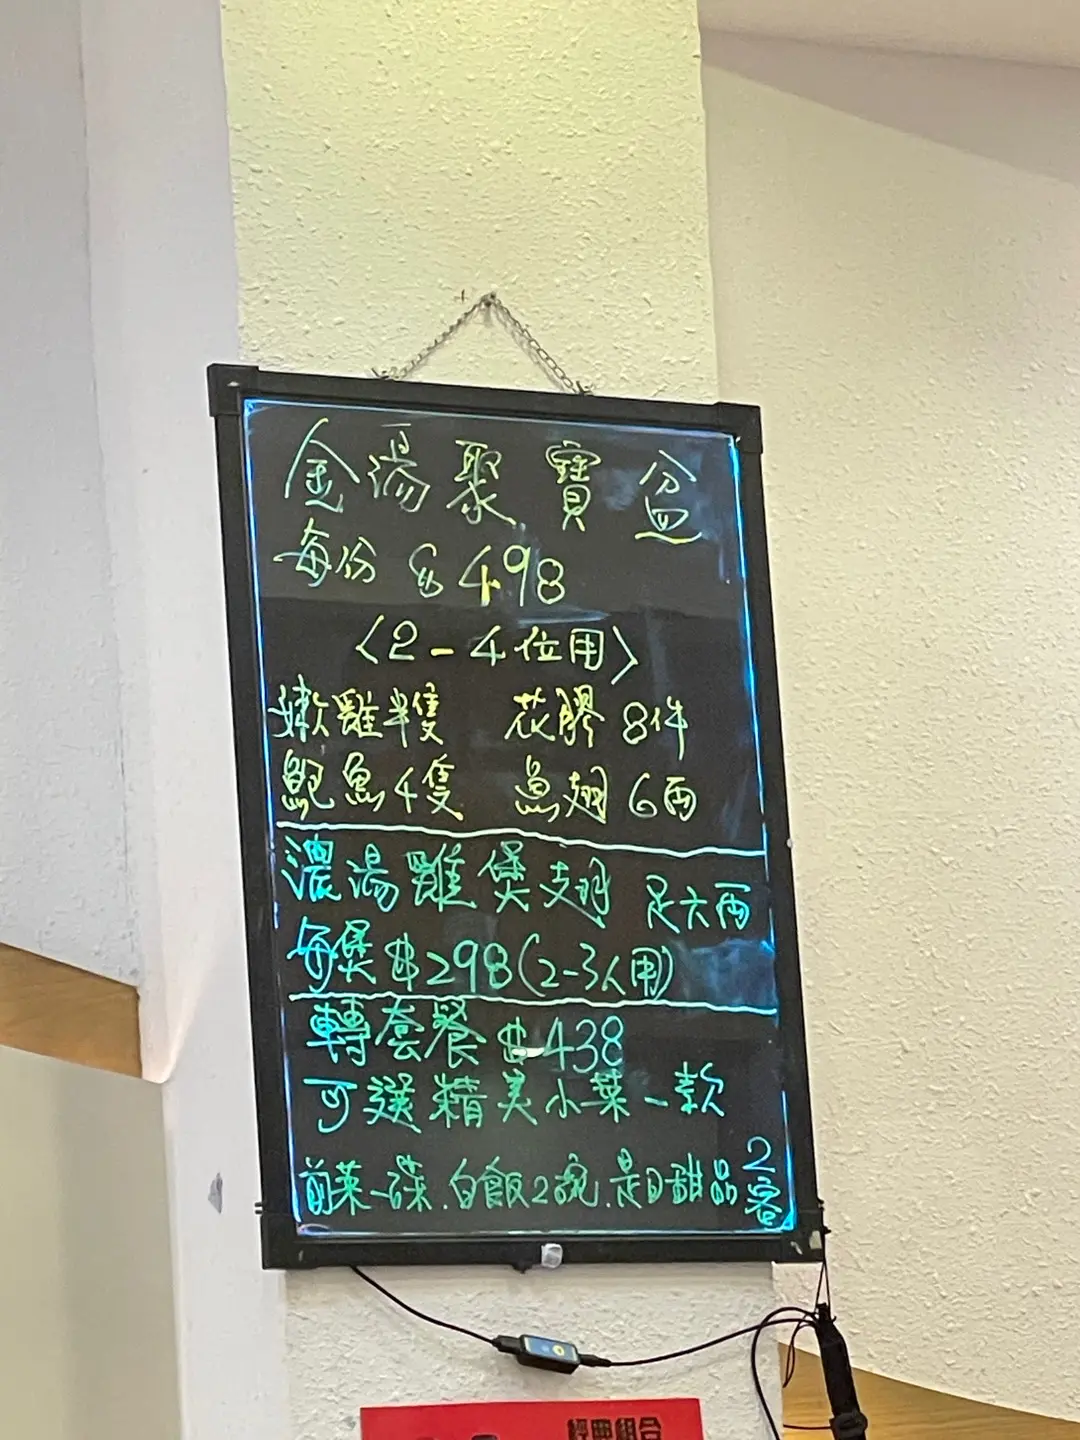 金湯聚寶盆
每份 $498
〈2-4位用〉
嫩雞半隻 花膠 8件
鮑魚4隻 魚翅 6両
濃湯雞煲翅 足六両
每煲 $298(2-3人用)
轉套餐 $438
可選精美小菜一款
前菜一碟.白飯2碗.是日甜品2客
經典組合